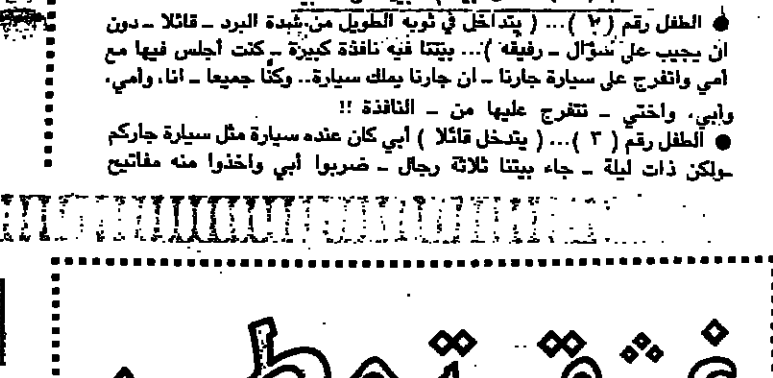 ● الطفل رقم ( ٢ )... ( يتداخل في ثوبه الطويل من شدة البرد ــ قائلا ــ دون
ان يجيب على سؤال ــ رفيقه )... بيتنا فيه نافذة كبيرة ــ كنت أجلس فيها مع
أمي واتفرج على سيارة جارنا ــ ان جارنا يملك سيارة.. وكنّا جميعا ــ انا، وأمي،
وأبي، وأختي ــ نتفرج عليها من ــ النافذة !!
● الطفل رقم ( ٣ )... ( يتدخل قائلا ) أبي كان عنده سيارة مثل سيارة جاركم
ــ ولكن ذات ليلة ــ جاء بيتنا ثلاثة رجال ــ ضربوا أبي وأخذوا منه مفاتيح